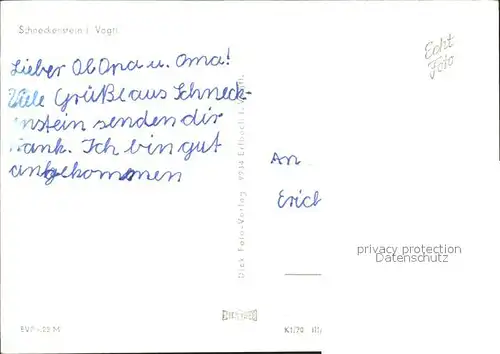 Schneckenstein i. Vogtl.
Echt
Foto
Lieber Ob Opa u. Oma!
Viele Grüße aus Schneck-
enstein senden dir
Frank. Ich bin gut
angekommen
An
Erich
Dick Foto-Verlag 9934 Erlbach i. Vogtl.
privacy protection
Datenschutz
K1/70